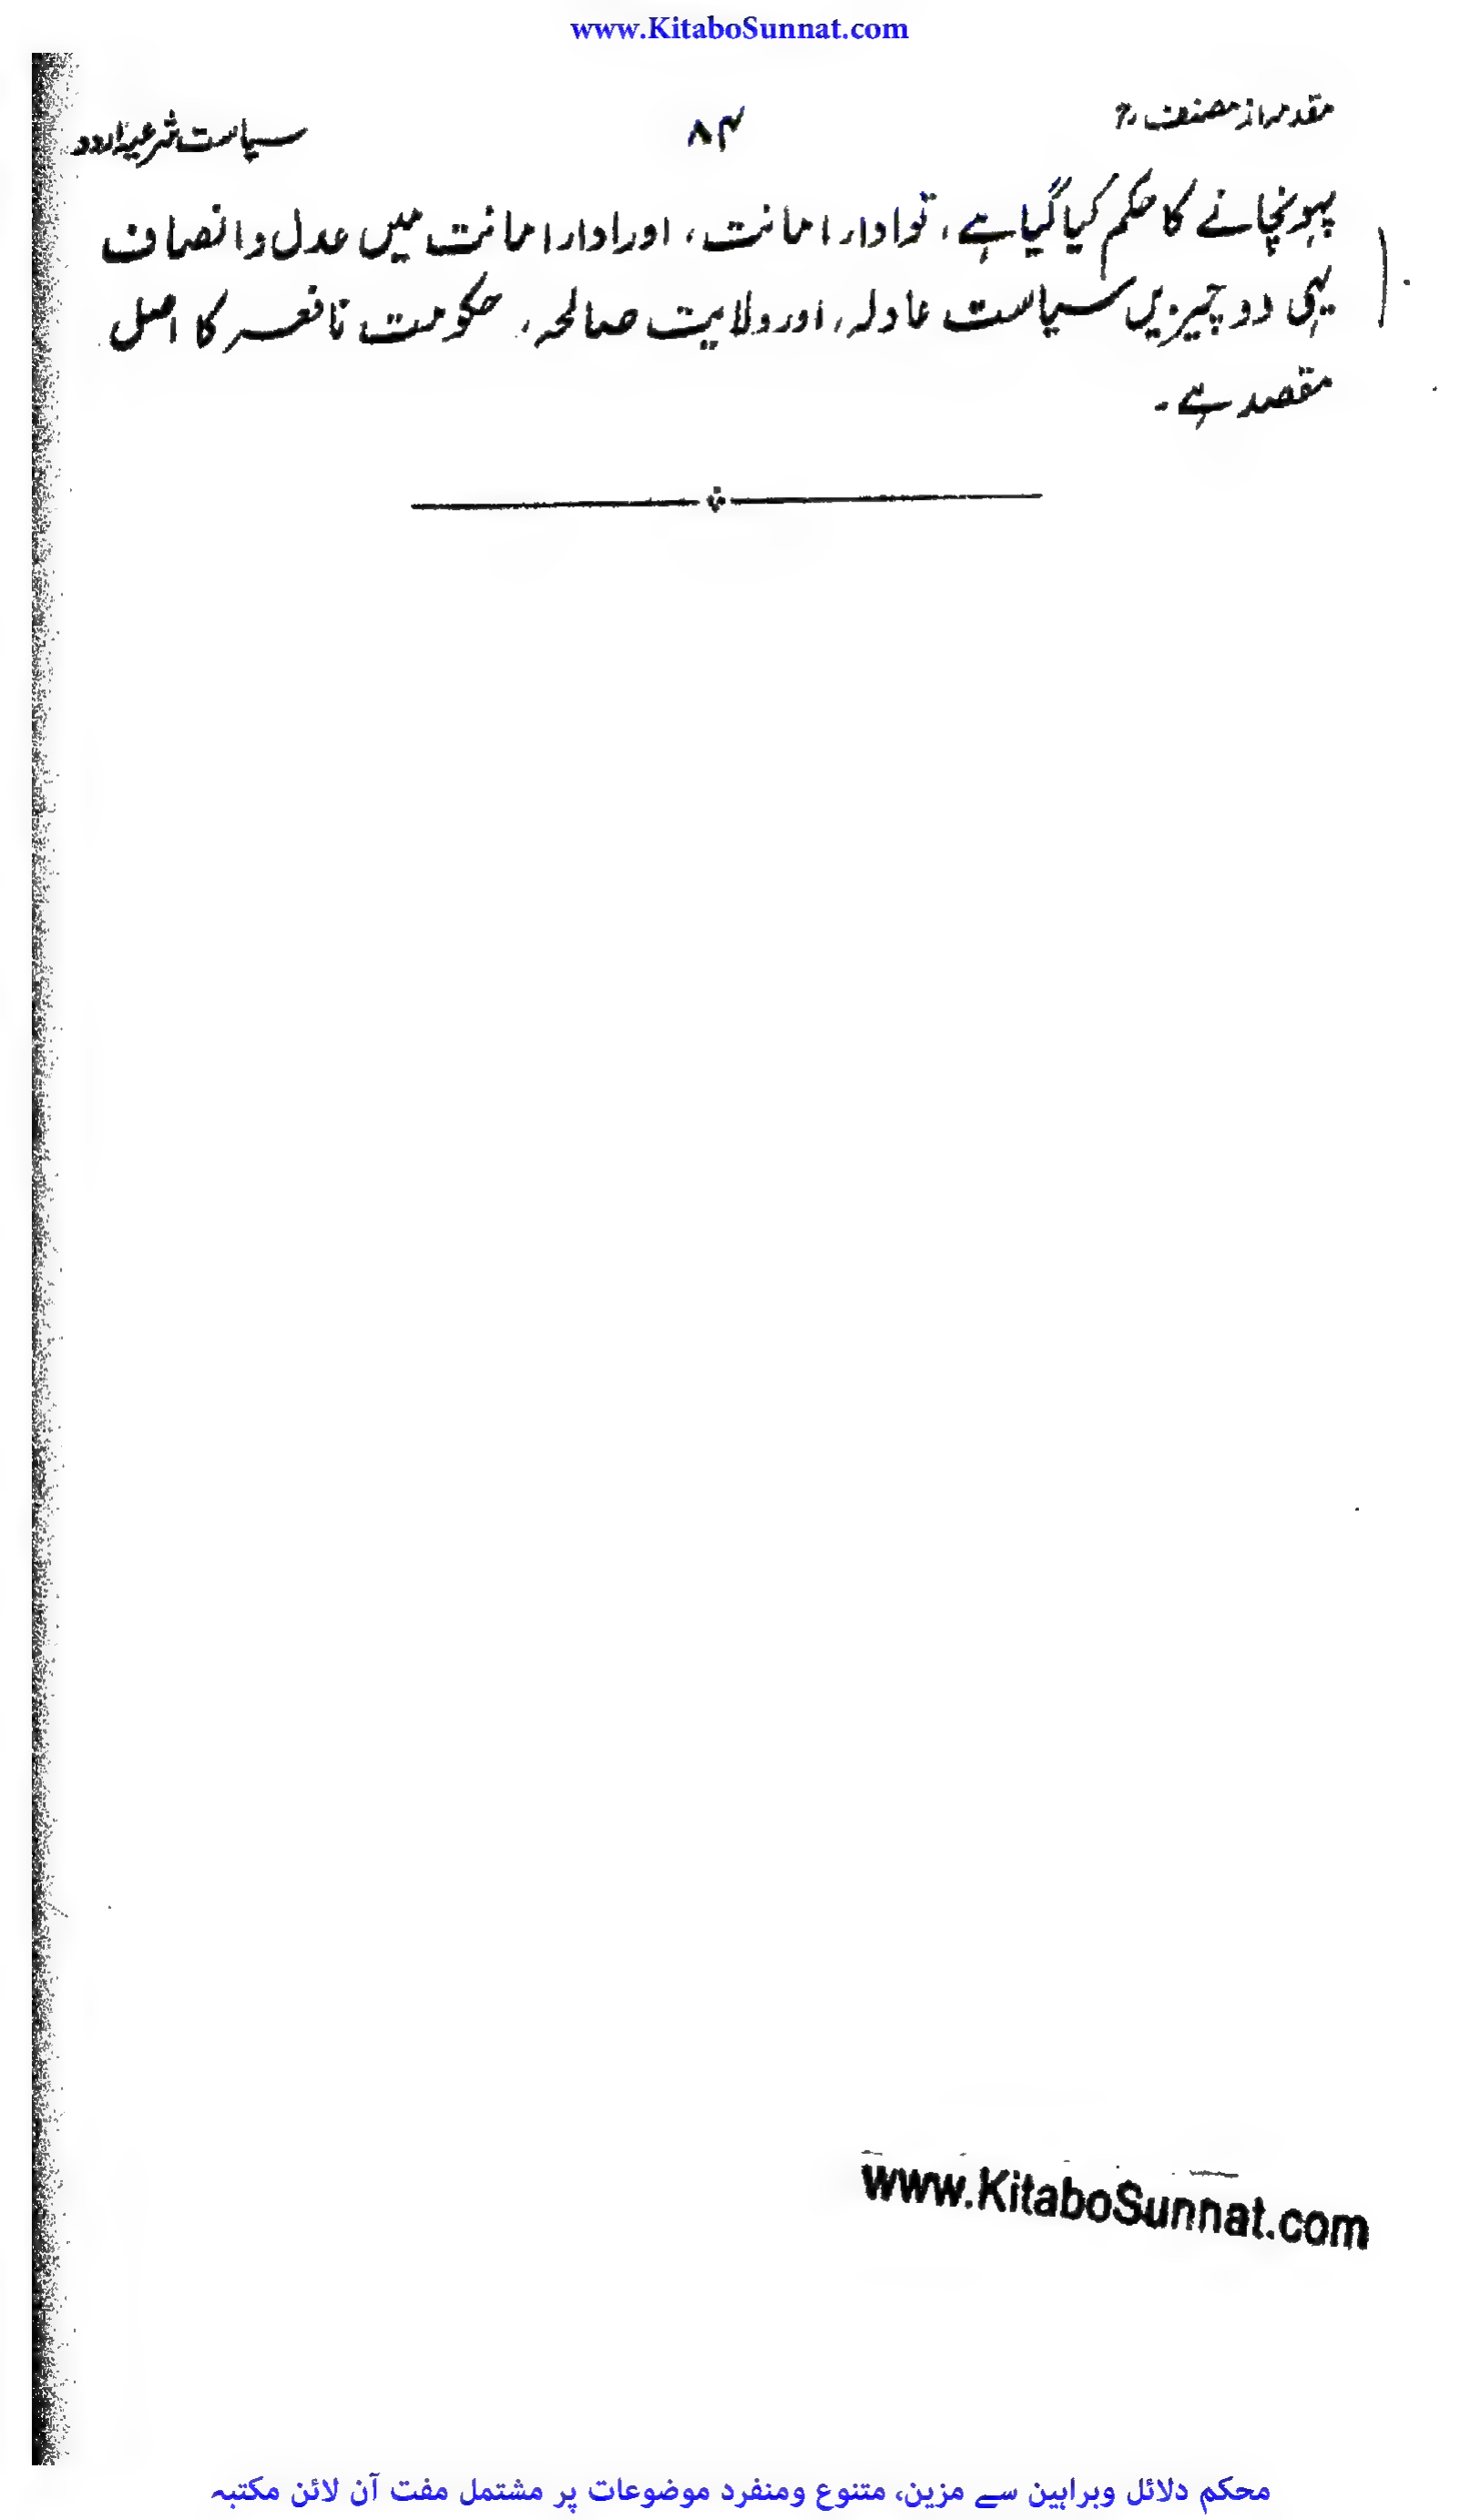 www.KitaboSunnat.com
مقدمہ از مصنفؒ ۸۴ سیاست شرعیہ اردو
پہونچانے کا حکم کیا گیا ہے، تو اداء امانت، اور اداء امانت میں عدل و انصاف
یہی دو چیزیں سیاست عادلہ، اور ولایت صالحہ، حکومت نافعہ کا اصل
مقصد ہے۔
www.KitaboSunnat.com
محکم دلائل وبراہین سے مزین، متنوع ومنفرد موضوعات پر مشتمل مفت آن لائن مکتبہ